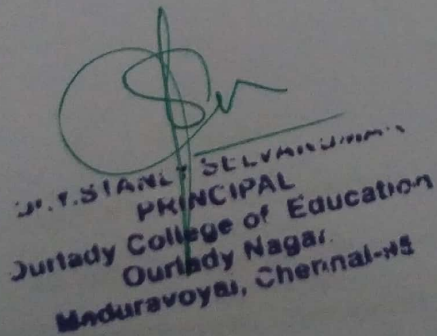 Dr. T. STANLY SELVAKUMAR
PRINCIPAL
Ourlady College of Education
Ourlady Nagar
Maduravoyal, Chennai-95